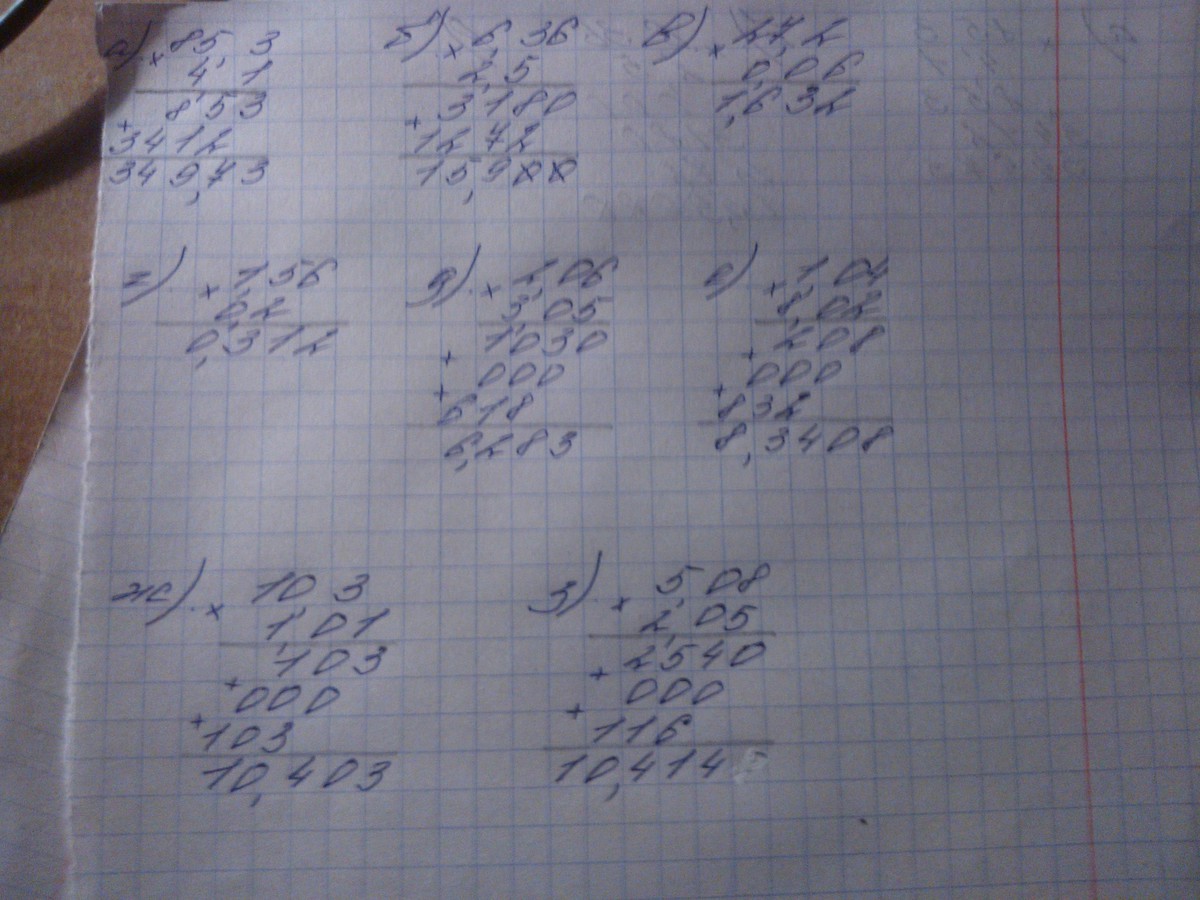 а) × 85,3
4,1
+ 853
3412
349,73
б) × 6,36
2,5
+ 3180
1272
15,900
в) × 27,2
0,06
1,632
г) × 1,56
0,2
0,312
д) × 2,06
3,05
+ 1030
+ 000
618
6,283
е) × 1,04
8,02
+ 208
+ 000
832
8,3408
ж) × 10,3
1,01
+ 103
+ 000
103
10,403
з) × 5,08
2,05
+ 2540
+ 000
116
10,414